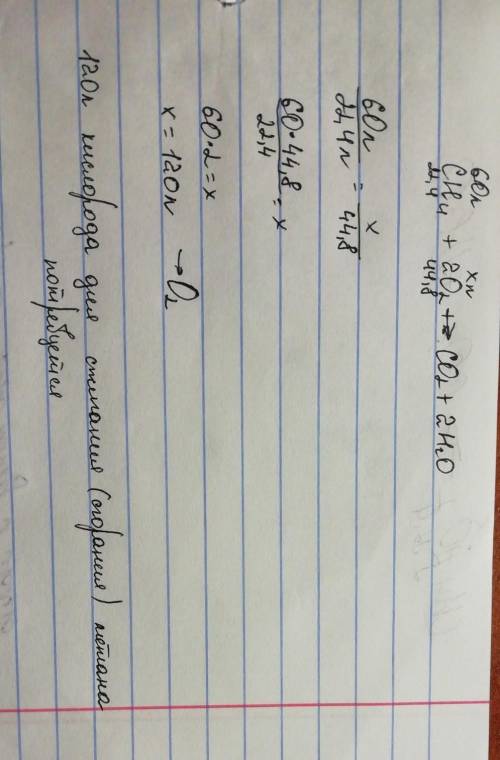 60л хл
CH4 + 2O2 +→ CO2 + 2H2O
22,4 44,8
60л / 22,4л = x / 44,8
60•44,8 / 22,4 = x
60•2=x
x = 120л → O2
120л кислорода для сжигания (сгорания) метана
потребуется